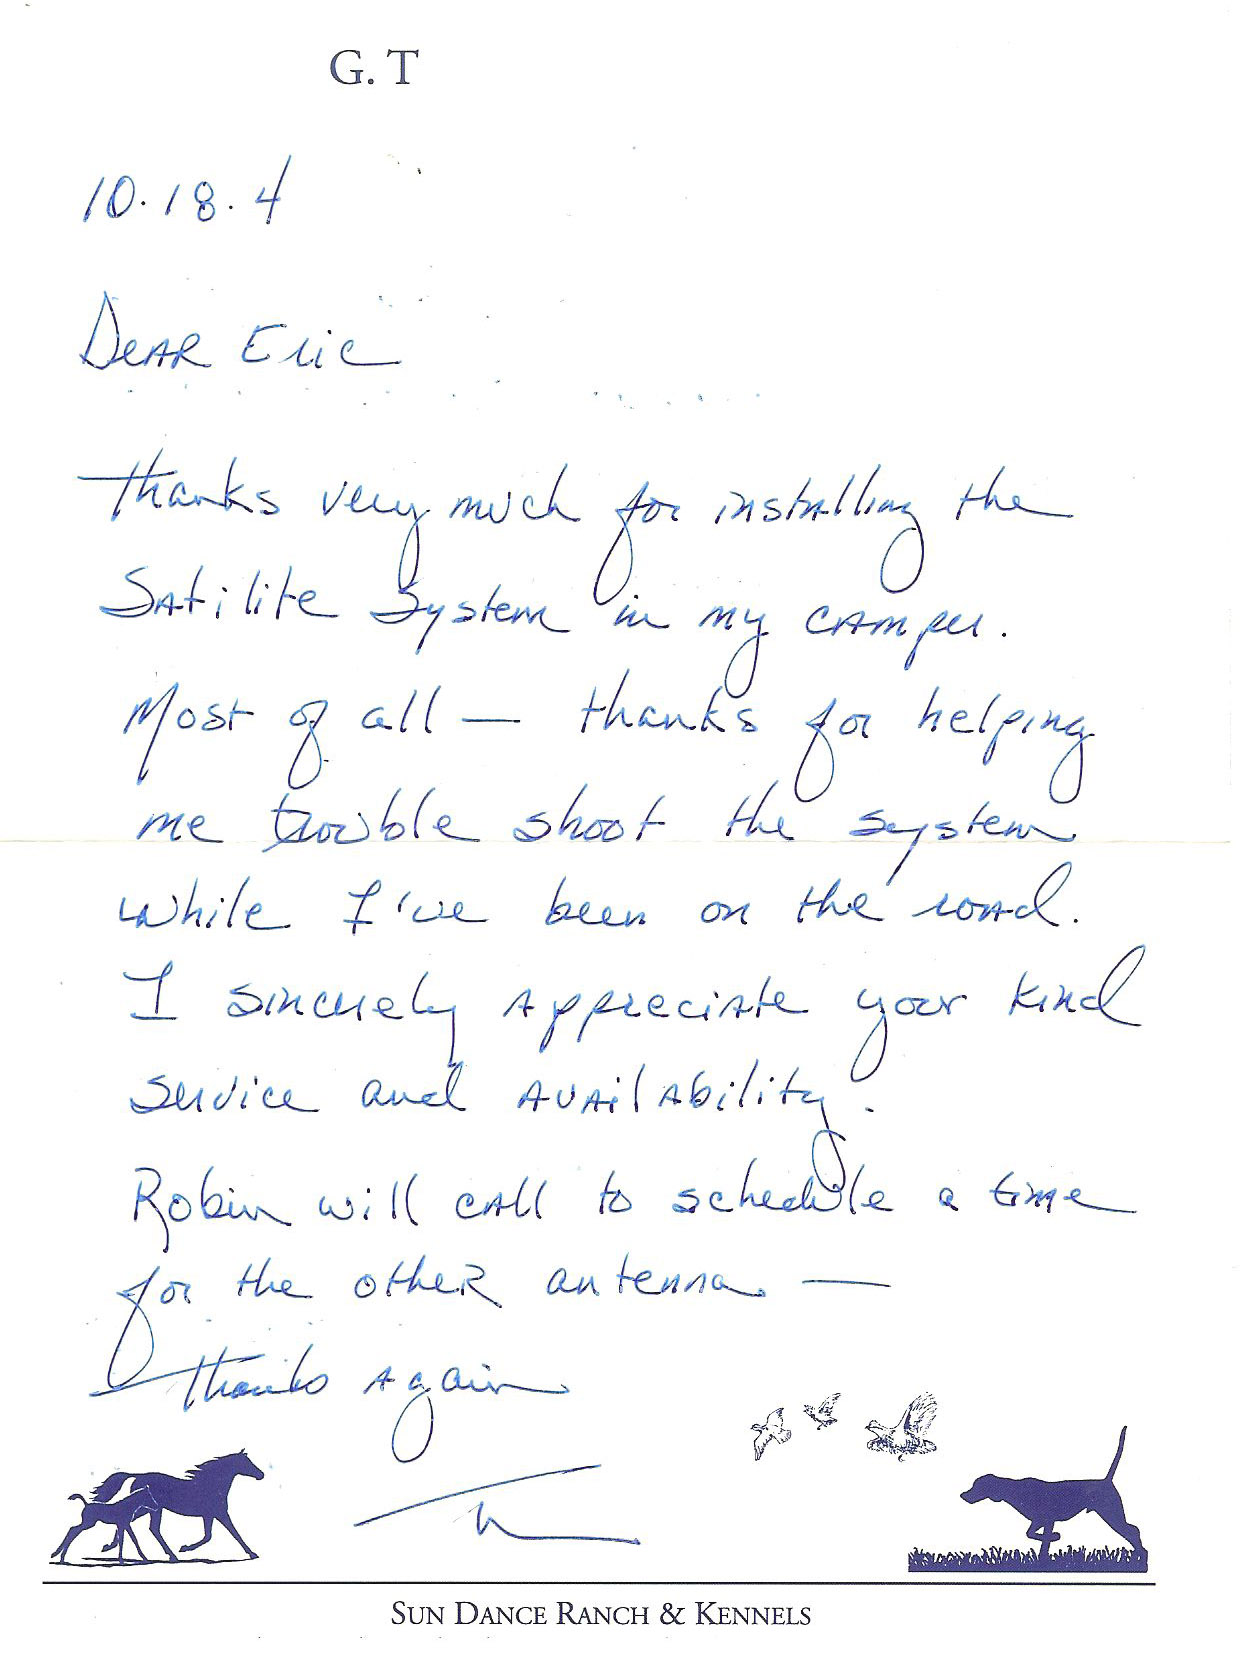 G. T
10.18.4
Dear Eric
Thanks very much for installing the
Satilite System in my camper.
Most of all — thanks for helping
me trouble shoot the system
while I've been on the road.
I sincerely appreciate your kind
service and availability.
Robin will call to schedule a time
for the other antenna. —
Thanks again
SUN DANCE RANCH & KENNELS